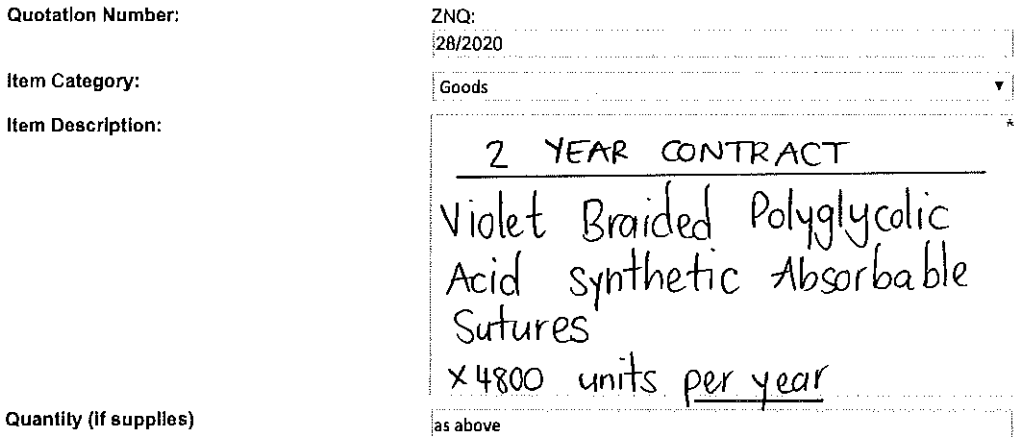 Quotation Number:
ZNQ:
28/2020
Item Category:
Goods
Item Description:
*
2 YEAR CONTRACT
Violet Braided Polyglycolic
Acid synthetic Absorbable
Sutures
x 4800 units per year
Quantity (if supplies)
as above